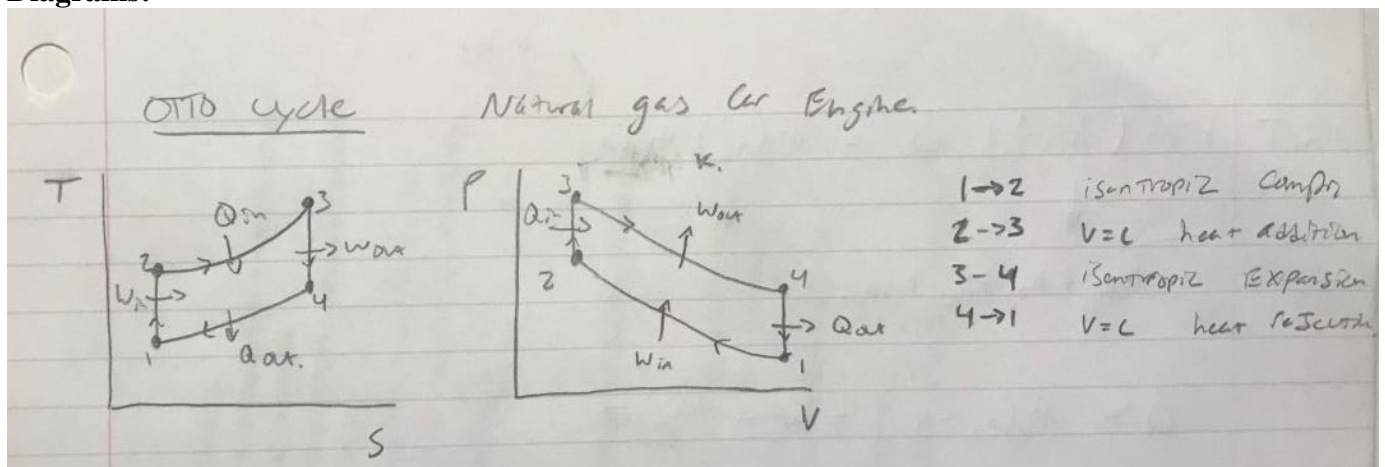 Diagrams:
OTTO cycle
Natural gas Car Engine
T
2
Win
1
Qin
3
Wout
4
Qout.
S
P
3
K.
Qin
2
Wout
Win
4
Qout
1
V
1→2 isentropic Compr
2->3 V=C heat addition
3-4 isentropic Expansion
4→1 V=C heat rejection